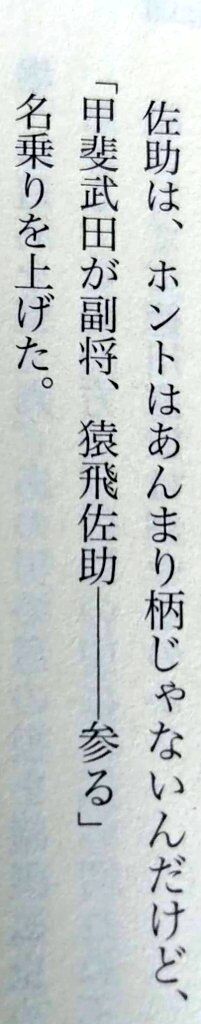 佐助は、ホントはあんまり柄じゃないんだけど、
「甲斐武田が副将、猿飛佐助――参る」
名乗りを上げた。